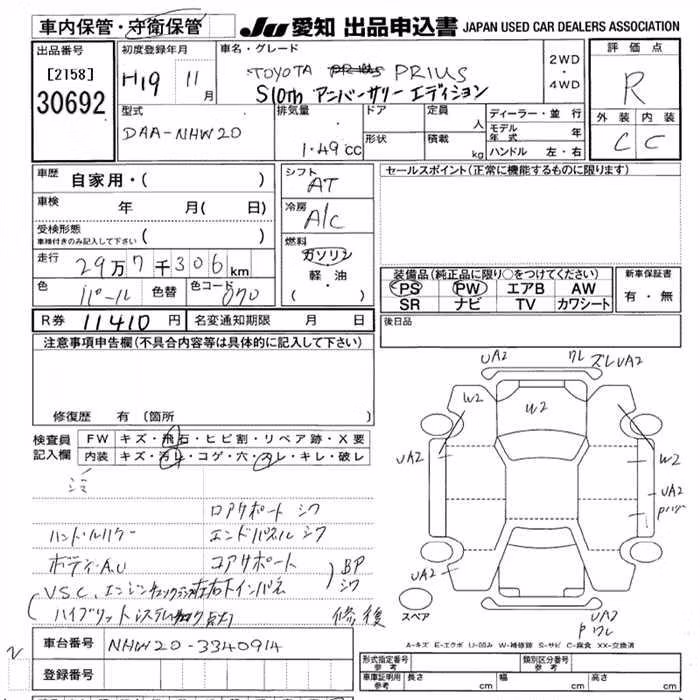 車内保管・守衛保管 JU 愛知 出品申込書 JAPAN USED CAR DEALERS ASSOCIATION
出品番号 初度登録年月 車名・グレード 評価点
[2158] H19 11月 TOYOTA PRIUS 2WD・4WD R
30692 S10th アニバーサリー エディション
型式 排気量 ドア 定員 人 ディーラー・並行 外装 内装
DAA-NHW20 1.49cc 形状 積載 kg モデル年式 年 C C
ハンドル 左・右
車歴 自家用・( ) シフト AT セールスポイント(正常に機能するものに限ります)
車検 年 月( 日) 冷房 A/C
受検形態 車検付きのみ記入して下さい ( )
走行 29万7千306km 燃料 ガソリン 軽・油 ・( )
装備品(純正品に限り○をつけてください) 新車保証書
色 パール 色替 色コード 070 PS PW エアB AW 有・無
SR ナビ TV カワシート
R券 11410円 名変通知期限 月 日 後日品
注意事項申告欄(不具合内容等は具体的に記入して下さい)
UA2 ワレ ズレUA2
W2 W2
修復歴 有 〔箇所 〕
検査員記入欄 FW キズ・飛石・ヒビ割・リペア跡・X要
内装 キズ・汚レ・コゲ・穴・スレ・キレ・破レ
UA2 W2
UA2
ロアサポート シワ
エンドパネル シワ
ボディ・A,U コアサポート BP シワ
V.S.C.エンジンチェックランプ 左右インパネ
ハイブリットシステム 点灯 修復
UA2
スペア UA2
P ワレ
A-キズ E-エクボ U-凹み W-補修跡 S-サビ C-腐食 XX-交換済
車台番号 NHW20-3340914
登録番号
形式指定番号 参考 類別区分番号 参考
車庫証明用 参考 長さ cm 幅 cm 高さ cm